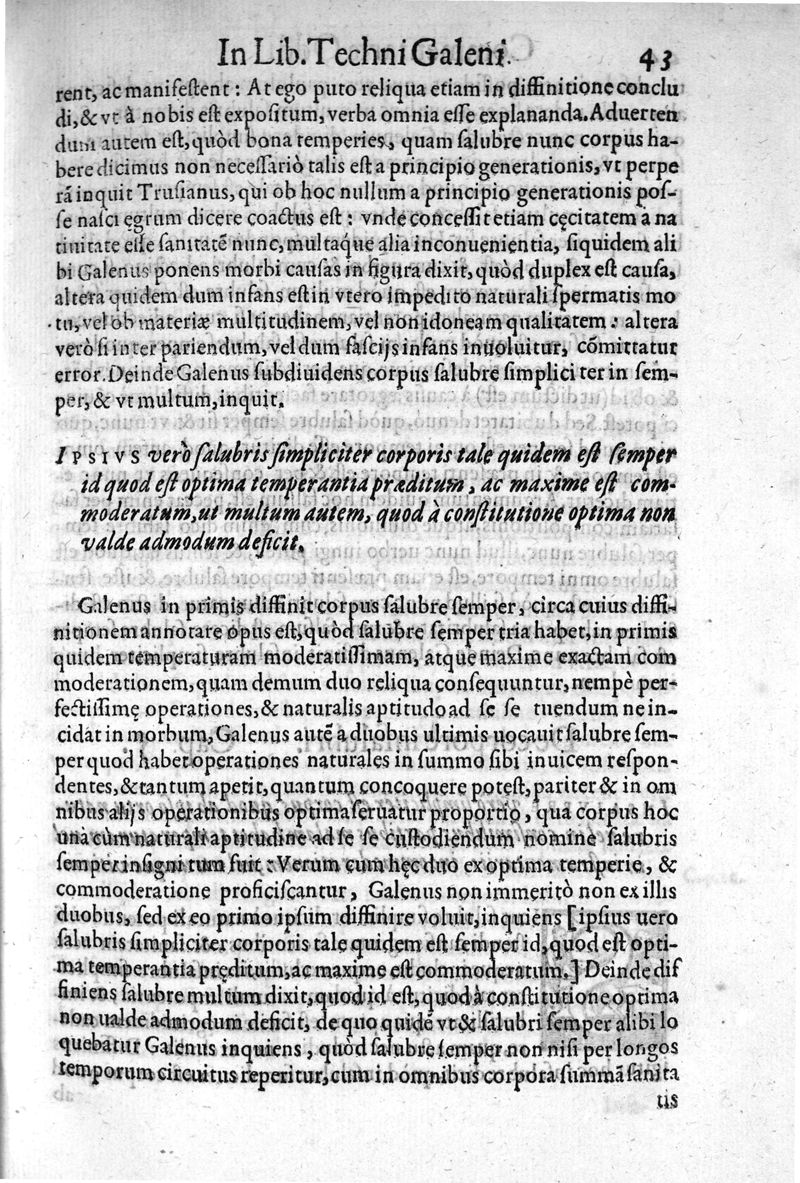 In Lib. Techni Galeni. 43
rent, ac manifeſtent : At ego puto reliqua etiam in diffinitione conclu
di, & vt à nobis eſt expoſitum, verba omnia eſſe explananda. Aduerten
dum autem eſt, quòd bona temperies, quam ſalubre nunc corpus ha-
bere dicimus non neceſſariò talis eſt a principio generationis, vt perpe
rā inquit Truſianus, qui ob hoc nullum a principio generationis poſ-
ſe naſci ęgrum dicere coactus eſt : vnde conceſſit etiam cęcitatem a na
tiuitate eſſe ſanitatē nunc, multaq́ue alia inconuenientia, ſiquidem ali
bi Galenus ponens morbi cauſas in figura dixit, quòd duplex eſt cauſa,
altera quidem dum infans eſt in vtero impedito naturali ſpermatis mo
tu, vel ob materiæ multitudinem, vel non idoneam qualitatem : altera
verò ſi inter pariendum, vel dum faſcijs infans inuoluitur, cōmittatur
error. Deinde Galenus ſubdiuidens corpus ſalubre ſimplici ter in ſem-
per, & vt multum, inquit.
IPSIVS vero ſalubris ſimpliciter corporis tale quidem eſt ſemper
id quod eſt optima temperantia præditum, ac maxime eſt com-
moderatum, ut multum autem, quod à conſtitutione optima non
valde admodum deficit.
Galenus in primis diffinit corpus ſalubre ſemper, circa cuius diffi-
nitionem annotare opus eſt, quòd ſalubre ſemper tria habet, in primis
quidem temperaturam moderatiſſimam, atque maxime exactam com
moderationem, quam demum duo reliqua conſequuntur, nempè per-
fectiſſimę operationes, & naturalis aptitudo ad ſe ſe tuendum ne in-
cidat in morbum, Galenus autē a duobus ultimis uocauit ſalubre ſem-
per quod habet operationes naturales in ſummo ſibi inuicem reſpon-
dentes, & tantum apetit, quantum concoquere poteſt, pariter & in om
nibus alijs operationibus optima ſeruatur proportio, qua corpus hoc
una cùm naturali aptitudine ad ſe ſe cuſtodiendum nomine ſalubris
ſemper inſigni tum fuit : Verum cum hęc duo ex optima temperie, &
commoderatione proficiſcantur, Galenus non immeritò non ex illis
duobus, ſed ex eo primo ipſum diffinire voluit, inquiens [ ipſius uero
ſalubris ſimpliciter corporis tale quidem eſt ſemper id, quod eſt opti-
ma temperantia pręditum, ac maxime eſt commoderatum. ] Deinde dif
finiens ſalubre multum dixit, quod id eſt, quod à conſtitutione optima
non ualde admodum deficit, de quo quidē vt & ſalubri ſemper alibi lo
quebatur Galenus inquiens, quòd ſalubre ſemper non niſi per longos
temporum circuitus reperitur, cum in omnibus corpora ſummā ſanita
tis